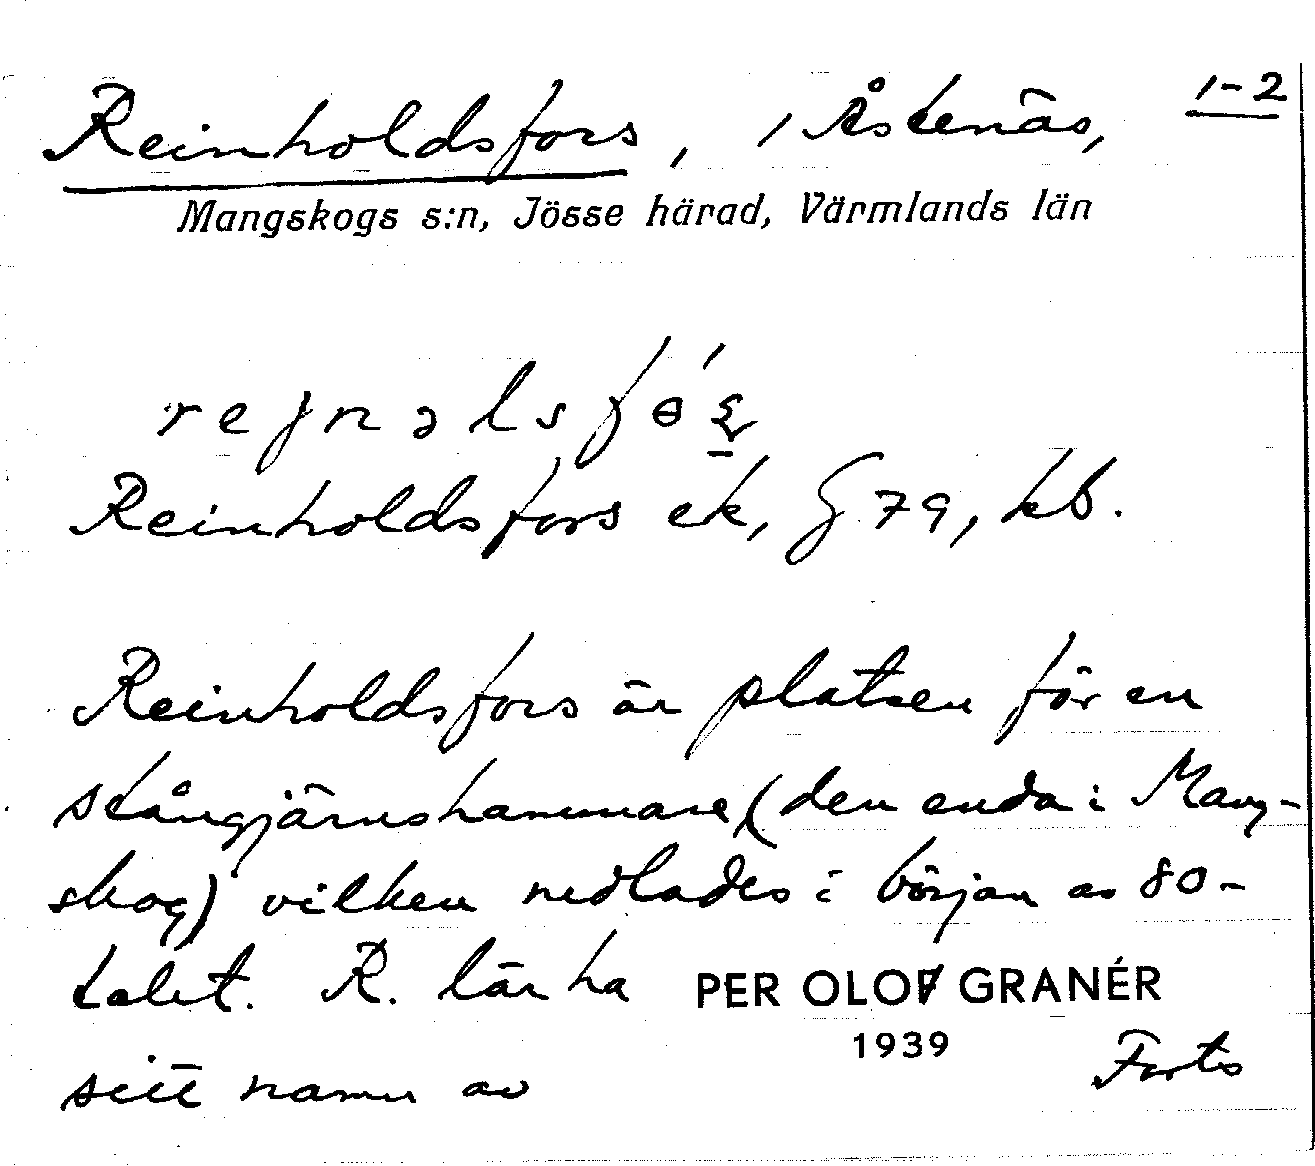 Reinholdsfors, i Åstenäs, 1-2
Mangskogs s:n, Jösse härad, Värmlands län
rejnəlsfɵ́ʂ
Reinholdsfors ek, G 79, kb.
Reinholdsfors är platsen för en
stångjärnshammare (den enda i Mang-
skog) vilken nedlades i början av 80-
talet. R. lär ha
sitt namn av
PER OLOF GRANÉR
1939
Forts